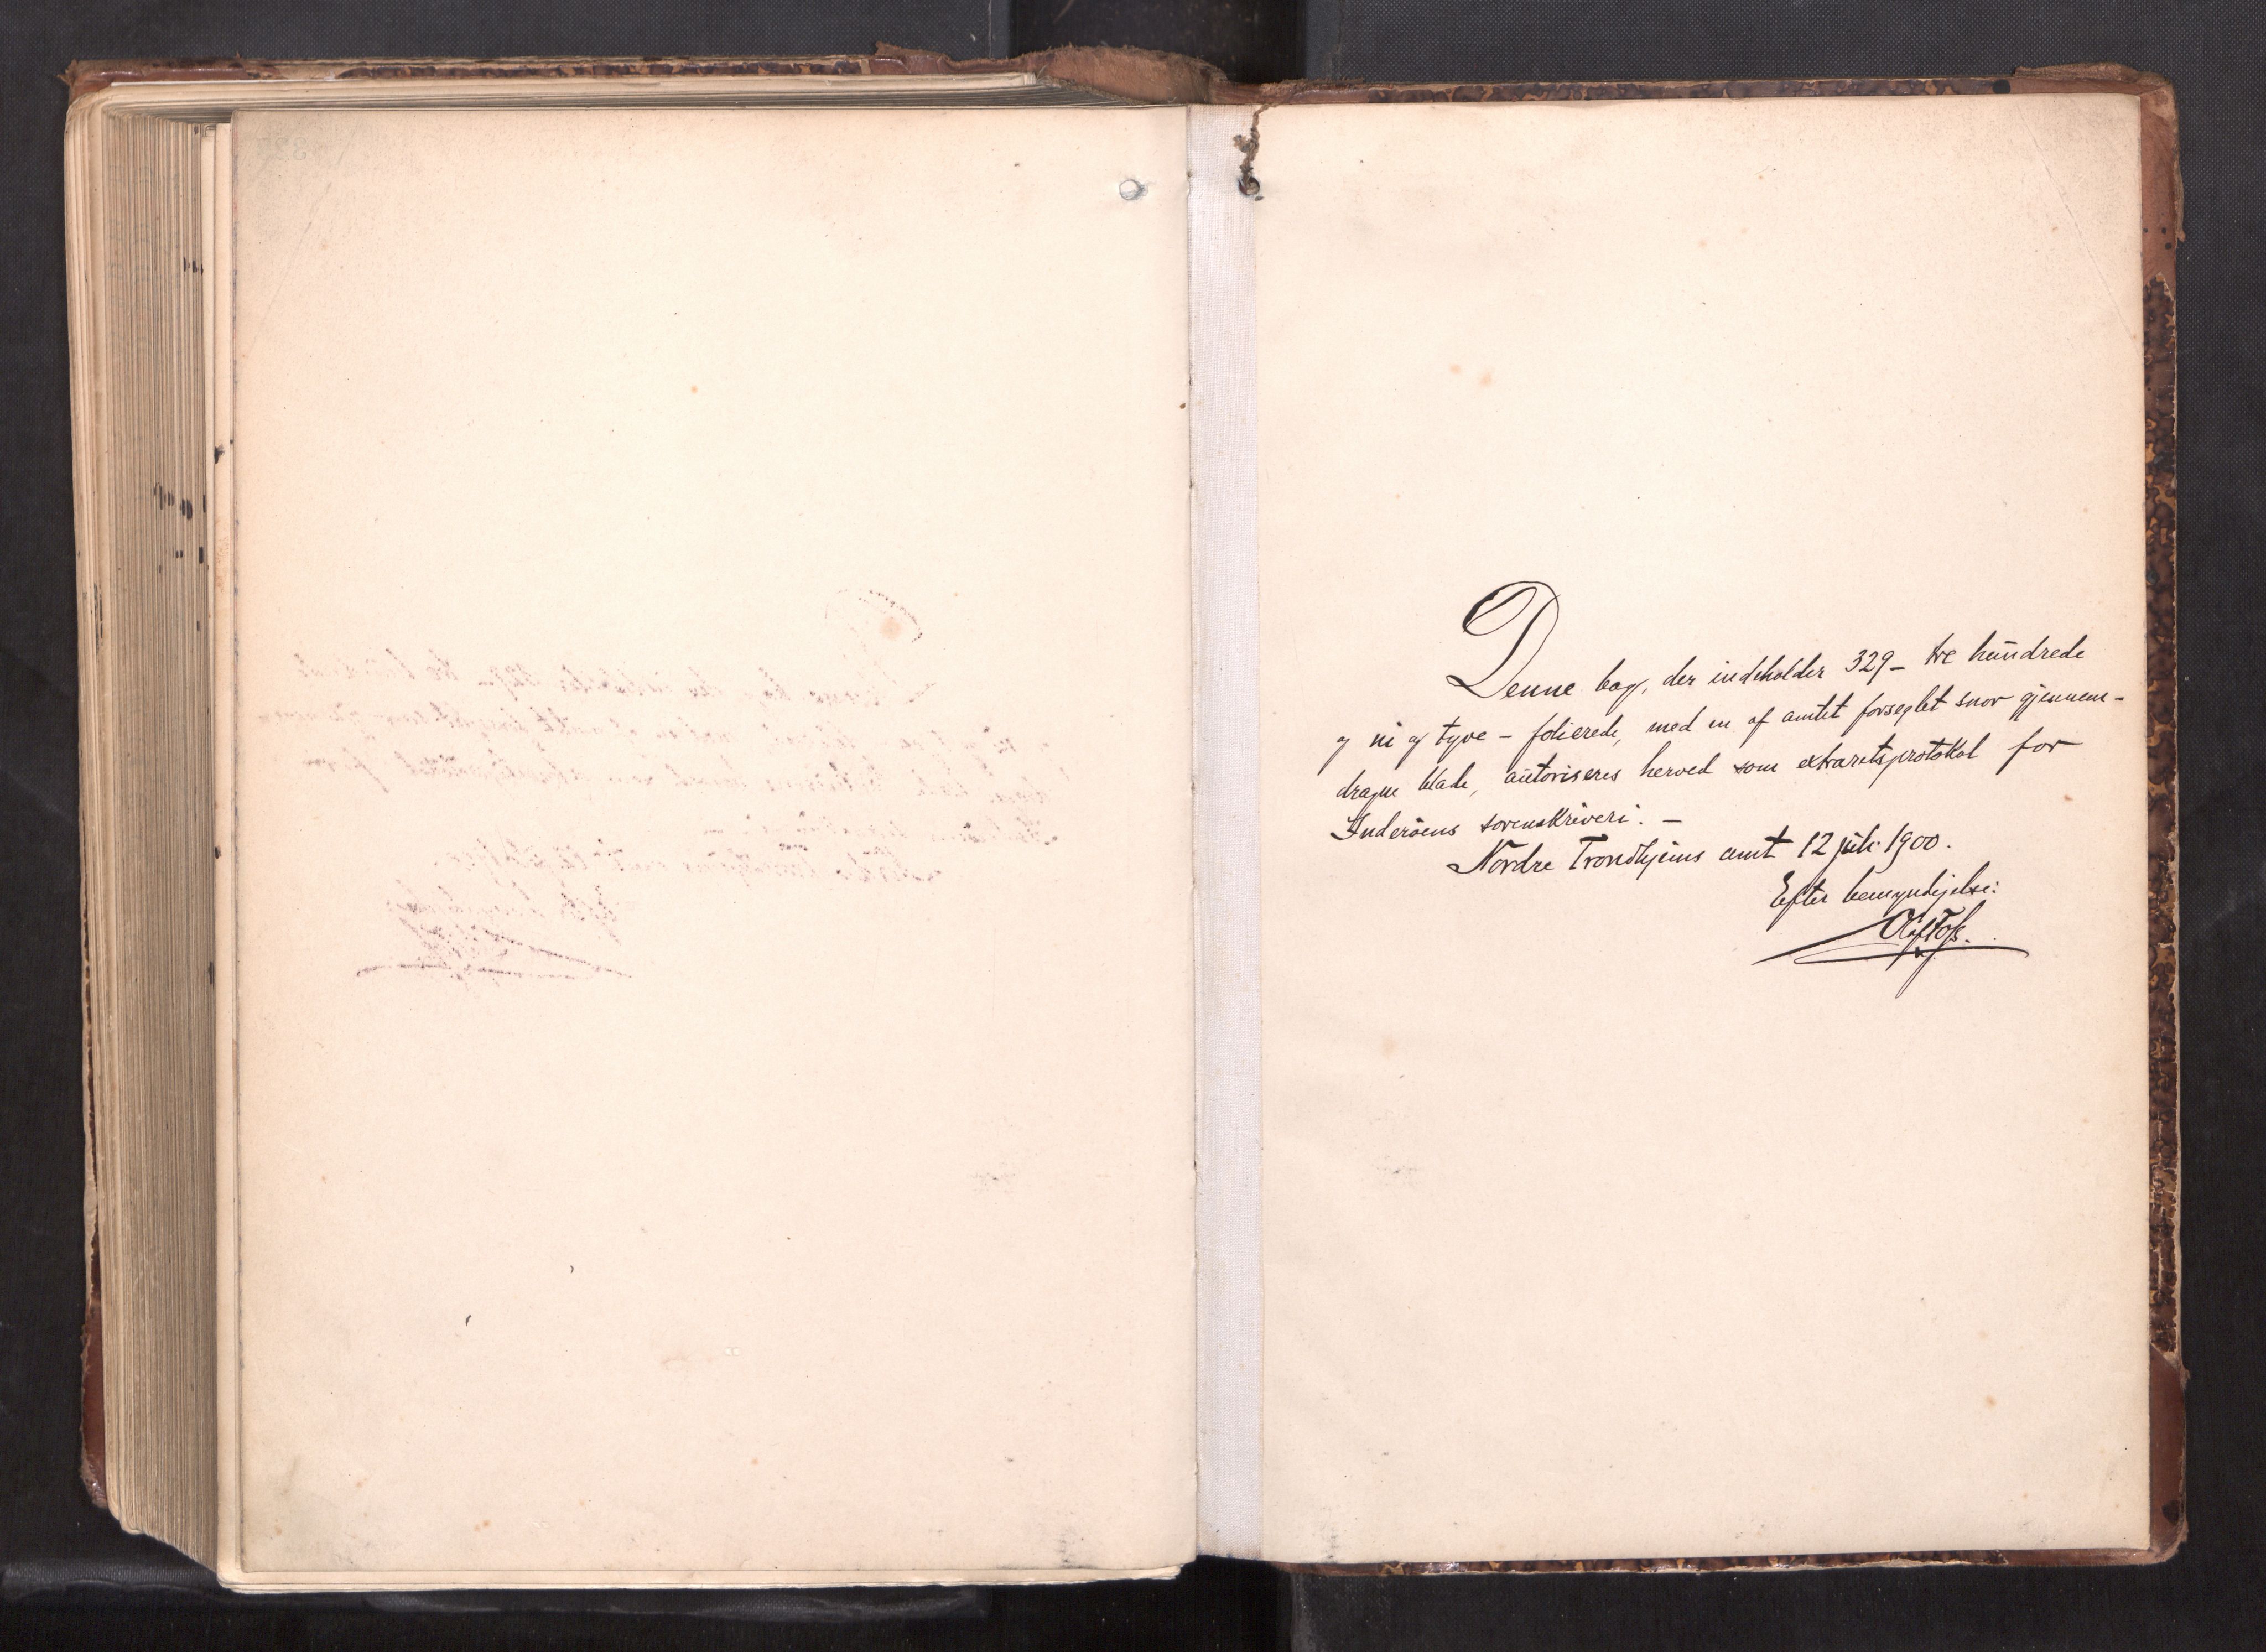 Denne bog, der indeholder 329 – tre hundrede
og ni og tyve – folierede, med en af amtet forseglet snor gjennem-
dragne blade, autoriseres herved som extraretsprotokol for
Inderöens sorenskriveri. –
Nordre Trondhjems amt 12 juli 1900.
Efter bemyndigelse: